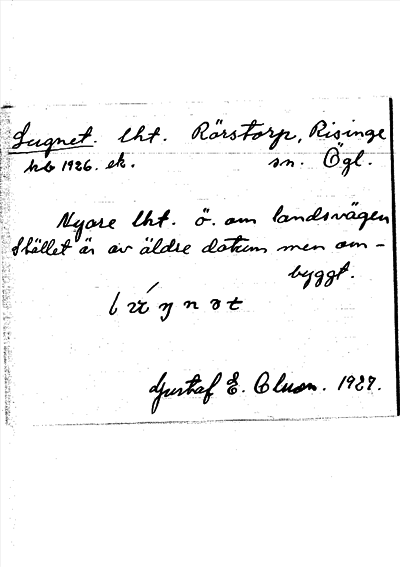 Lugnet. lht. Rörstorp, Risinge
kb 1926. ek. sn. Ögl.
Nyare lht. ö. om landsvägen
Stället är av äldre datum men om-
byggt.
Gustaf E. Olson. 1927.